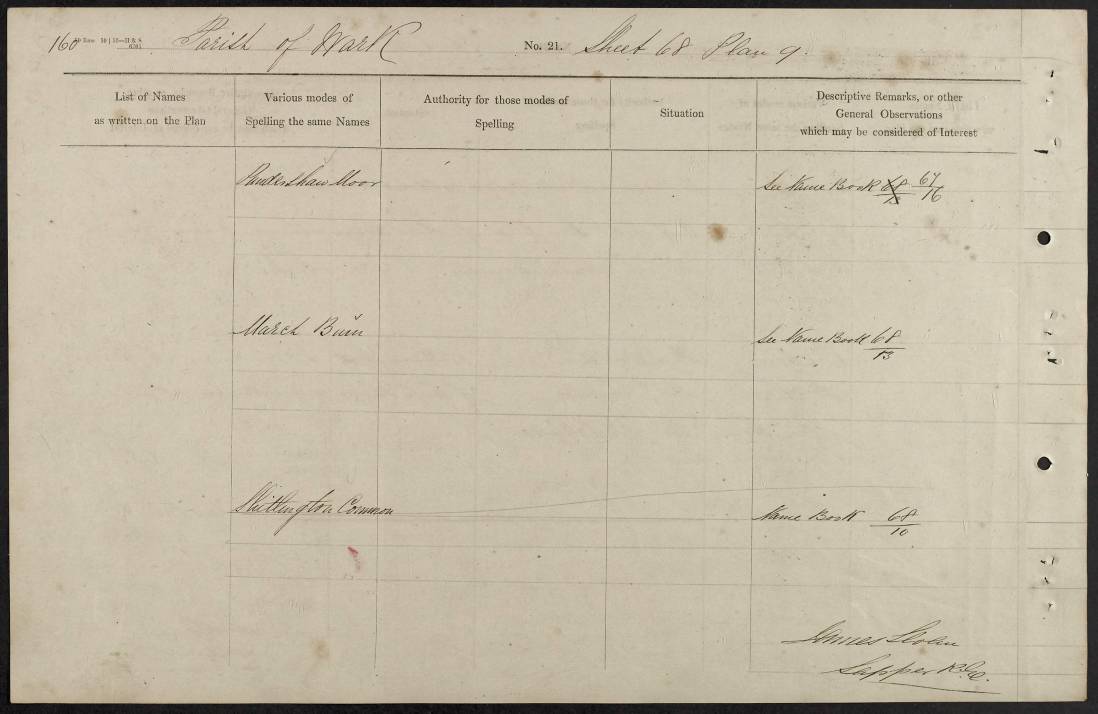 160 Parish of Wark No. 21. Sheet 68 Plan 9.
List of Names
as written on the Plan
Various modes of
Spelling the same Names
Authority for those modes of
Spelling
Situation
Descriptive Remarks, or other
General Observations
which may be considered of Interest
Pundershaw Moor
See Name Book 68/13 67/16
March Burn
See Name Book 68/13
Shitlington Common
Name Book 68/10
James Sloan
Sapper R.E.